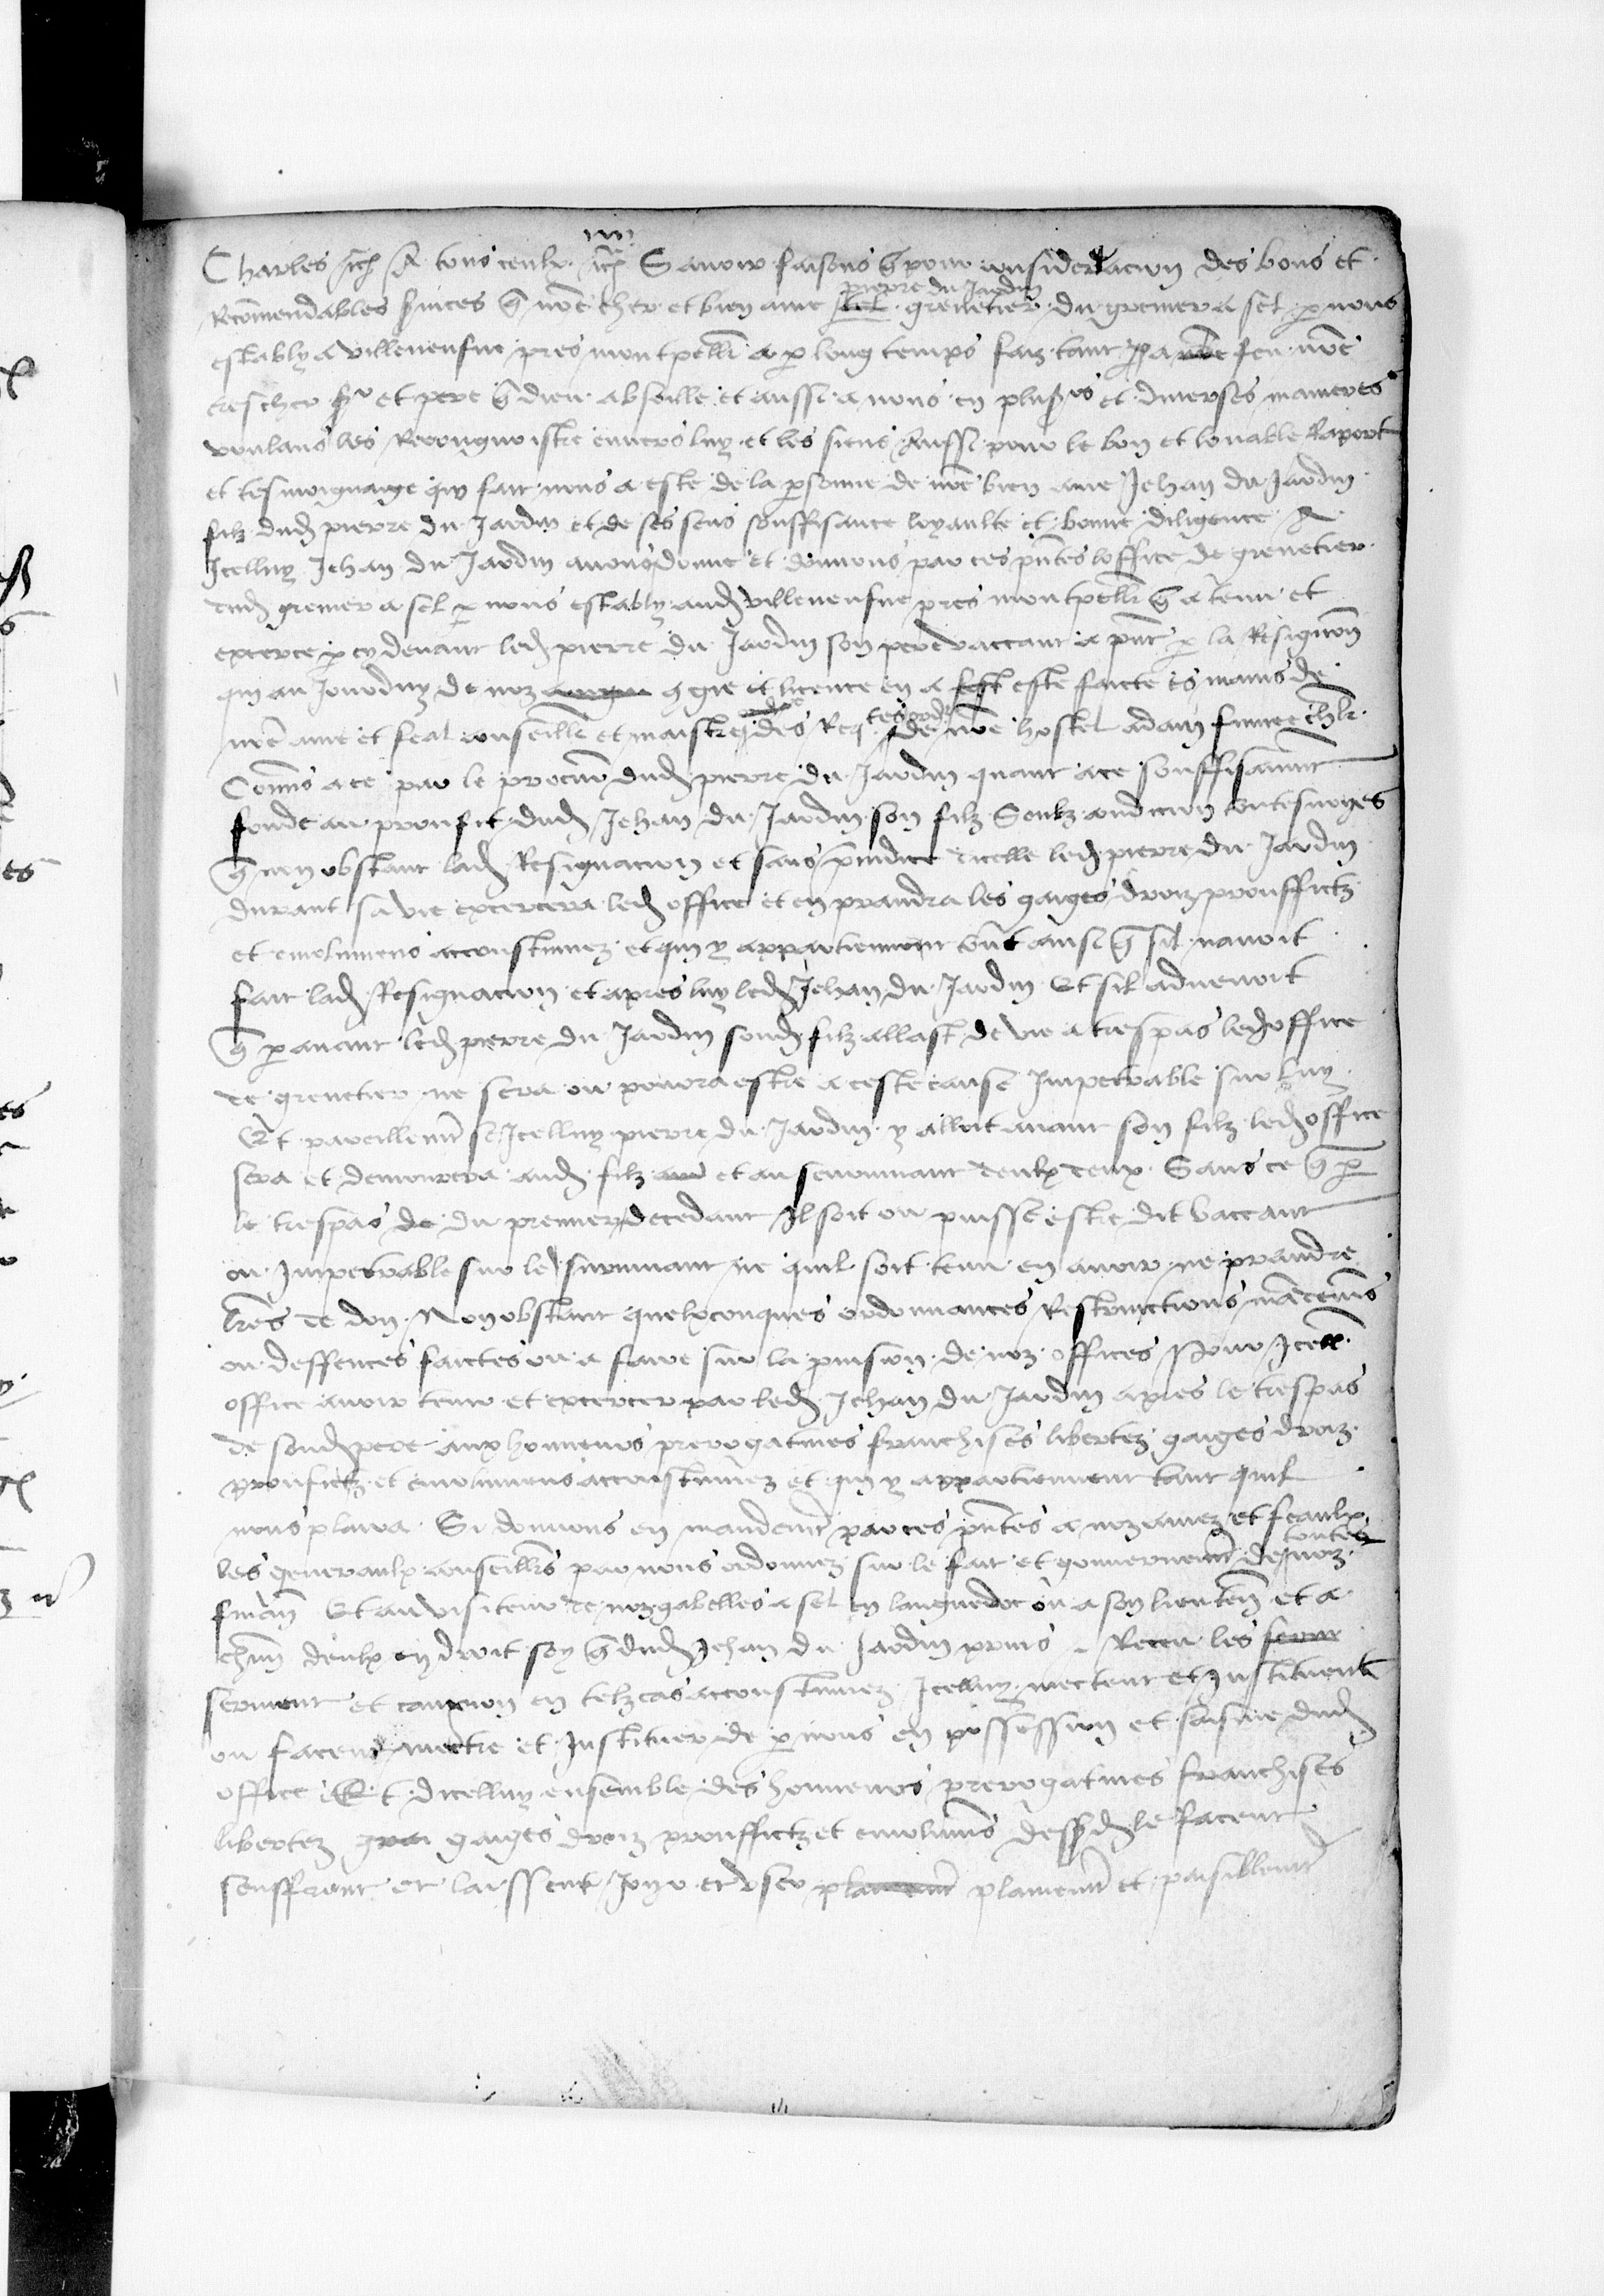 Charles etc A tous ceulx etc Savoir faisons q̃ pour consideracion des bons et
Recõmendables s̃vices q̃ nr̃e cher et bien ame pierre du Jardin grenetier du grenier a sel p nous
estably a villeneufve pres montpellr̃ a p long temps faiz tant a feu nr̃e
treschr̃ sr̃ et pere q̃ dieu absoille et aussi a nous en plus̃rs et diverses manieres
voulans les Recongnoistre envers luy et les siens Aussi pour le bon et louable Raport
et tesmoignaige qui fait nous a este de la p̱sonne de nr̃e bien ame Jehan du Jardin
filz dud pierre du Jardin et de ses sens souffisance loyaulte et bonne diligence A
Icelluy Jehan du Jardin avons donne et donnons par ces pñtes loffice de grenetier
dud grenier a sel p nous estably aud villeneufve pres montpellr̃ q̃ a tenu et
exerce p cy devant led pierre du Jardin son pere vaccant a pñt p la Resignc̃on
qui au Jourduy de noz gre et licence en a este faicte es mains de
nr̃e ame et feal conseillr̃ et maistre des Reqtes ord de nr̃e hostel adam fumee chlr̃
Com̃is a ce par le procur̃ dud pierre du Jardin quant a ce souffisam̃nt
fonde au prouffit dud Jehan du Jardin son filz Soubz condicion toutesvoyes
q̃ non obstant lad Resignacion et sans p̃iudice dicelle led pierre du Jardin
durant sa vie excercera led office et en prandra les gaiges droiz prouffictz
et emolumens acoustumez et qui y appartiennent tout ansi q̃ sil navoit
fait lad Resignacion et apres luy led Jehan du Jardin Et sil advenoit
q̃ p avant led pierre du Jardin sond filz allast de vie a trespas led office
de grenetier ne sera ou pourra estre a ceste cause Impetrable sur luy
Et pareillemt̃ se Icelluy pierre du Jardin y alloit avant son filz led office
sera et demourera aud filz et au survivant deulx deux Sans ce q̃ p
le trespas de du premier decedant Il soit ou puisse estre dit vaccant
ou Impetrable sur le survivant ne quil soit tenu en avoir ne prandre
lr̃es de don Non obstant quelxconques ordonnances Restrinctions mandem̃s
ou deffences faictes ou a faire sur la p̱vision de noz offices Pour Icell
office avoir tenir et excercer par led Jehan du Jardin apres le trespas
de sond pere aux honneurs prerogatives franchises libertez gaiges droiz
prouffictz et emolumens acoustumez et qui y appartiennent tant quil
nous plaira Si donnons en mandemt̃ par ces pñtes a noz amez et feaulx
les generaulx conseillr̃s par nous ordonnez sur le fait et gouvernemt̃ de toutes noz
finañ Et au visiteur de noz gabelles a sel en languedoc ou a son lieuteñ et a
chũn deulx en droit soy q̃ dud Jehan du Jardin prins & Receu les
serment et caucion en telz cas acoustumez Icelluy mectent et Instituent
ou facent mectre et Instituer de p nous en possession et saisine dud
office Et dicelluy ensemble des honneurs prerogatives franchises
libertez gaiges droiz prouffictz et emolum̃s dessusd le facent
souffrent et laissent Joyr et user plainemt̃ et paisiblemt̃